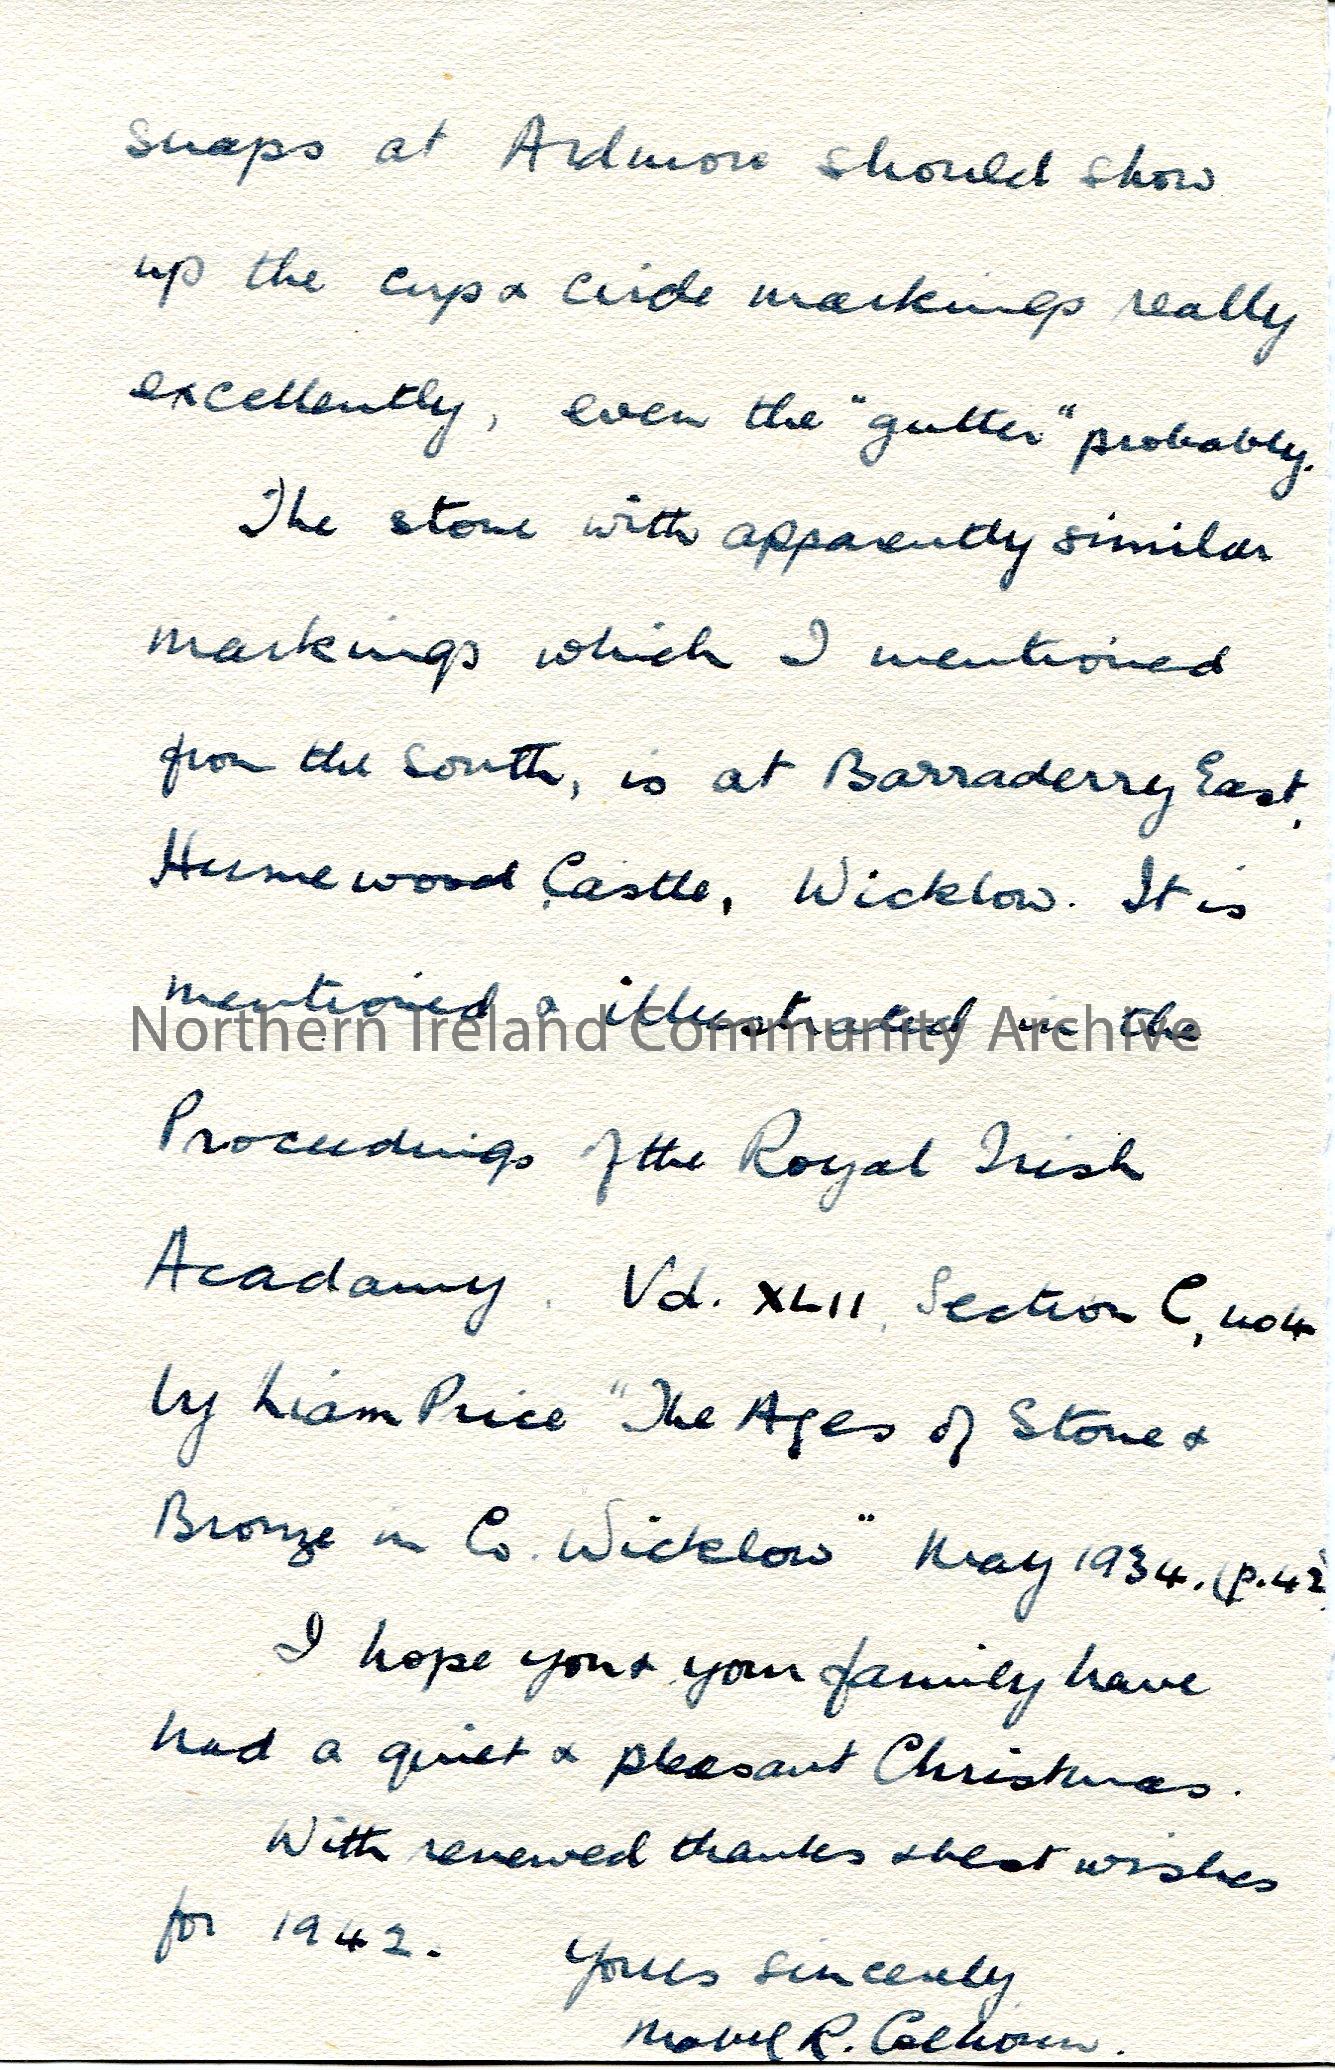 snaps at Ardmore should show
up the cup & circle markings really
excellently, even the "gutter" probably.
The stone with apparently similar
markings which I mentioned
from the South, is at Barraderry East,
Humewood Castle, Wicklow. It is
mentioned & illustrated in the
Northern Ireland Community Archive
Proceedings of the Royal Irish
Acadamy. Vol. XLII, Section C, no 4
by Liam Price "The Ages of Stone &
Bronze in Co. Wicklow" May 1934. (p. 42)
I hope you & your family have
had a quiet & pleasant Christmas.
With renewed thanks & best wishes
for 1942.
Yours sincerely
Mabel R. Colhoun.